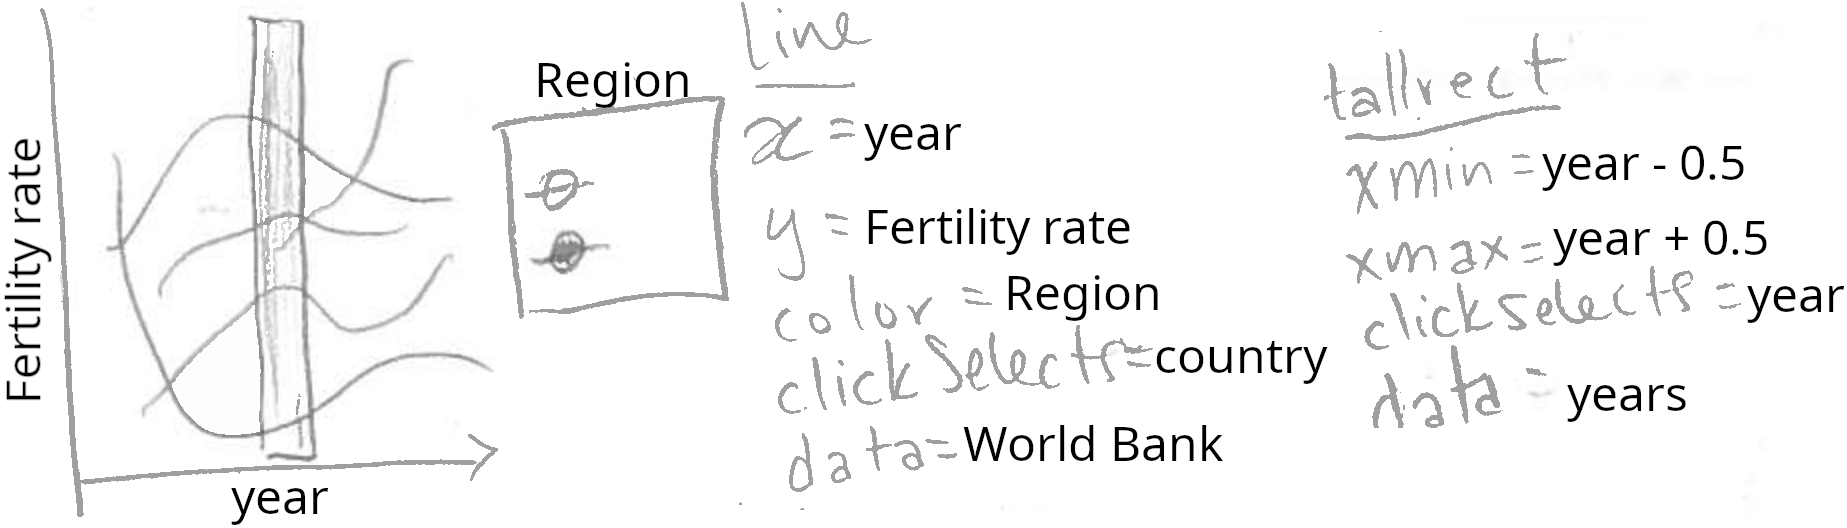 Fertility rate
year
Region
line
x = year
y = Fertility rate
color = Region
clickSelects = country
data = World Bank
tallrect
xmin = year - 0.5
xmax = year + 0.5
clickselects = year
data = years